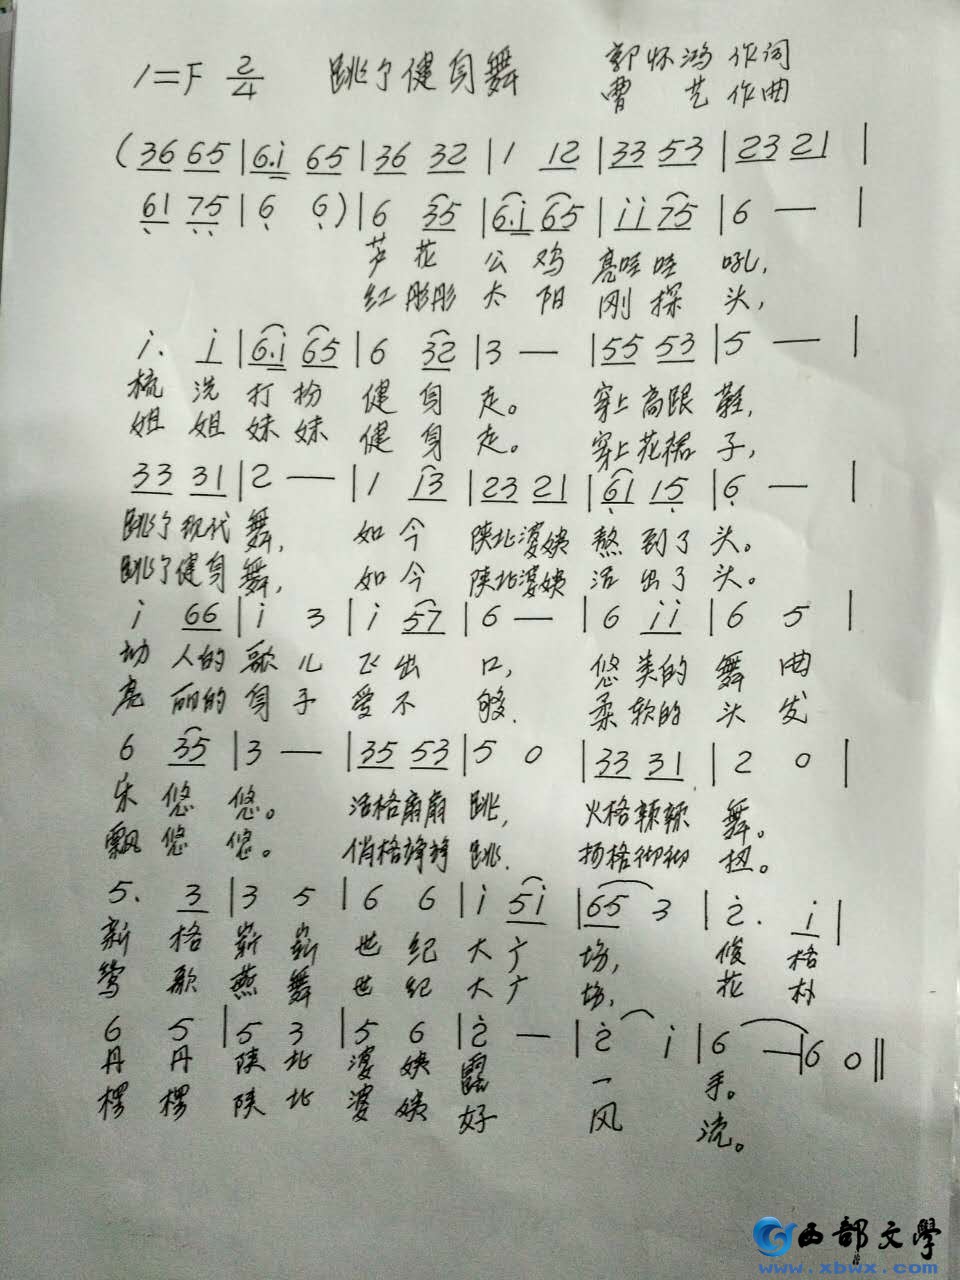 1=F 2/4 跳了健身舞 郭怀鸿 作词
曹 艺 作曲
(36 65 | 6.i 65 | 36 32 | 1 12 | 33 53 | 23 21 |
61 75 | 6 6 ) | 6 35 | 6.i 65 | ii 75 | 6 — |
芦 花 公 鸡 亮哇哇 吼,
红 彤彤 太 阳 刚 探 头,
i. i | 6.i 65 | 6 32 | 3 — | 55 53 | 5 — |
梳 洗 打 扮 健 身 走。 穿上高跟 鞋,
姐 姐 妹 妹 健 身 走。 穿上花裙 子,
33 31 | 2 — | 1 13 | 23 21 | 61 15 | 6 — |
跳了现代 舞, 如 今 陕北婆姨 熬 到了 头。
跳了健身 舞, 如 今 陕北婆姨 活 出了 头。
i 66 | i 3 | i 57 | 6 — | 6 ii | 6 5 |
动 人的 歌 儿 飞 出 口, 悠 美的 舞 曲
亮 丽的 身 子 爱 不 够. 柔 软的 头 发
6 35 | 3 — | 35 53 | 5 0 | 33 31 | 2 0 |
乐 悠 悠。 活格扇扇 跳, 火格辣辣 舞。
飘 悠 悠。 俏格铮铮 跳. 扬格柳柳 扭。
5. 3 | 3 5 | 6 6 | i 5i | 65 3 | 2. i |
崭 格 崭 崭 世 纪 大 广 场, 俊 格
莺 歌 燕 舞 世 纪 大 广 场, 花 朴
6 5 | 5 3 | 5 6 | 2 — | 2 i | 6 — | 6 0 ‖
丹 丹 陕 北 婆 姨 露 一 手。
楞 楞 陕 北 婆 姨 好 风 流。
西部文學
www.xbwx.com